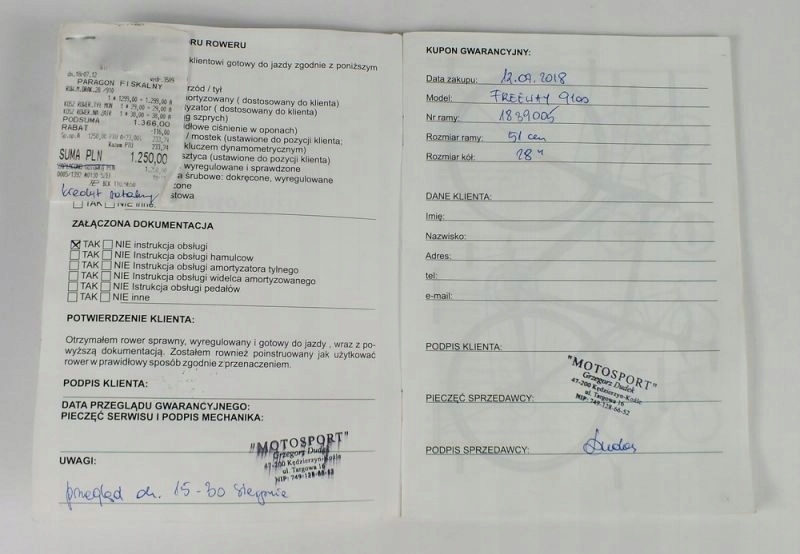 dn.18r07.12 wydr.3589
PARAGON FISKALNY
1 * 1299,00 = 1.299,00 A
1 * 29,00 = 29,00 A
1 * 38,00 = 38,00 A
PODSUMA 1.366,00
RABAT -116,00
Sp.op.A 1250,00 PTU A=23,00% 233,74
Razem PTU 233,74
SUMA PLN 1.250,00
kredyt ratalny
RU ROWERU
klientowi gotowy do jazdy zgodnie z poniższym
rzód / tył
mortyzowany ( dostosowany do klienta)
tyzator ( dostosowany do klienta)
g szprych)
dłowe ciśnienie w oponach)
/ mostek (ustawione do pozycji klienta;
kluczem dynamometrycznym)
sztyca (ustawione do pozycji klienta)
wyregulowane i sprawdzone
a śrubowe: dokręcone, wyregulowane
zone
stowa
TAK NIE inne
ZAŁĄCZONA DOKUMENTACJA
TAK NIE instrukcja obsługi
TAK NIE Instrukcja obsługi hamulcow
TAK NIE instrukcja obsługi amortyzatora tylnego
TAK NIE instrukcja obsługi widelca amortyzowanego
TAK NIE Istrukcja obsługi pedałów
TAK NIE inne
POTWIERDZENIE KLIENTA:
Otrzymałem rower sprawny, wyregulowany i gotowy do jazdy , wraz z po-
wyższą dokumentacją. Zostałem rownież poinstruowany jak użytkować
rower w prawidłowy sposób zgodnie z przenaczeniem.
PODPIS KLIENTA:
DATA PRZEGLĄDU GWARANCYJNEGO:
PIECZĘĆ SERWISU I PODPIS MECHANIKA:
"MOTOSPORT"
Grzegorz Dudek
47-200 Kędzierzyn-Koźle
ul. Targowa 16
NIP: 749-128-66-52
UWAGI:
przegląd dn. 15-30 sierpnia
KUPON GWARANCYJNY:
Data zakupu: 12.07.2018
Model: FREEWAY 9100
Nr ramy: 1839005
Rozmiar ramy: 51 cm
Rozmiar kół: 28"
DANE KLIENTA:
Imię:
Nazwisko:
Adres:
tel:
e-mail:
PODPIS KLIENTA:
"MOTOSPORT"
Grzegorz Dudek
47-200 Kędzierzyn-Koźle
ul. Targowa 16
NIP: 749-128-66-52
PIECZĘĆ SPRZEDAWCY:
PODPIS SPRZEDAWCY: